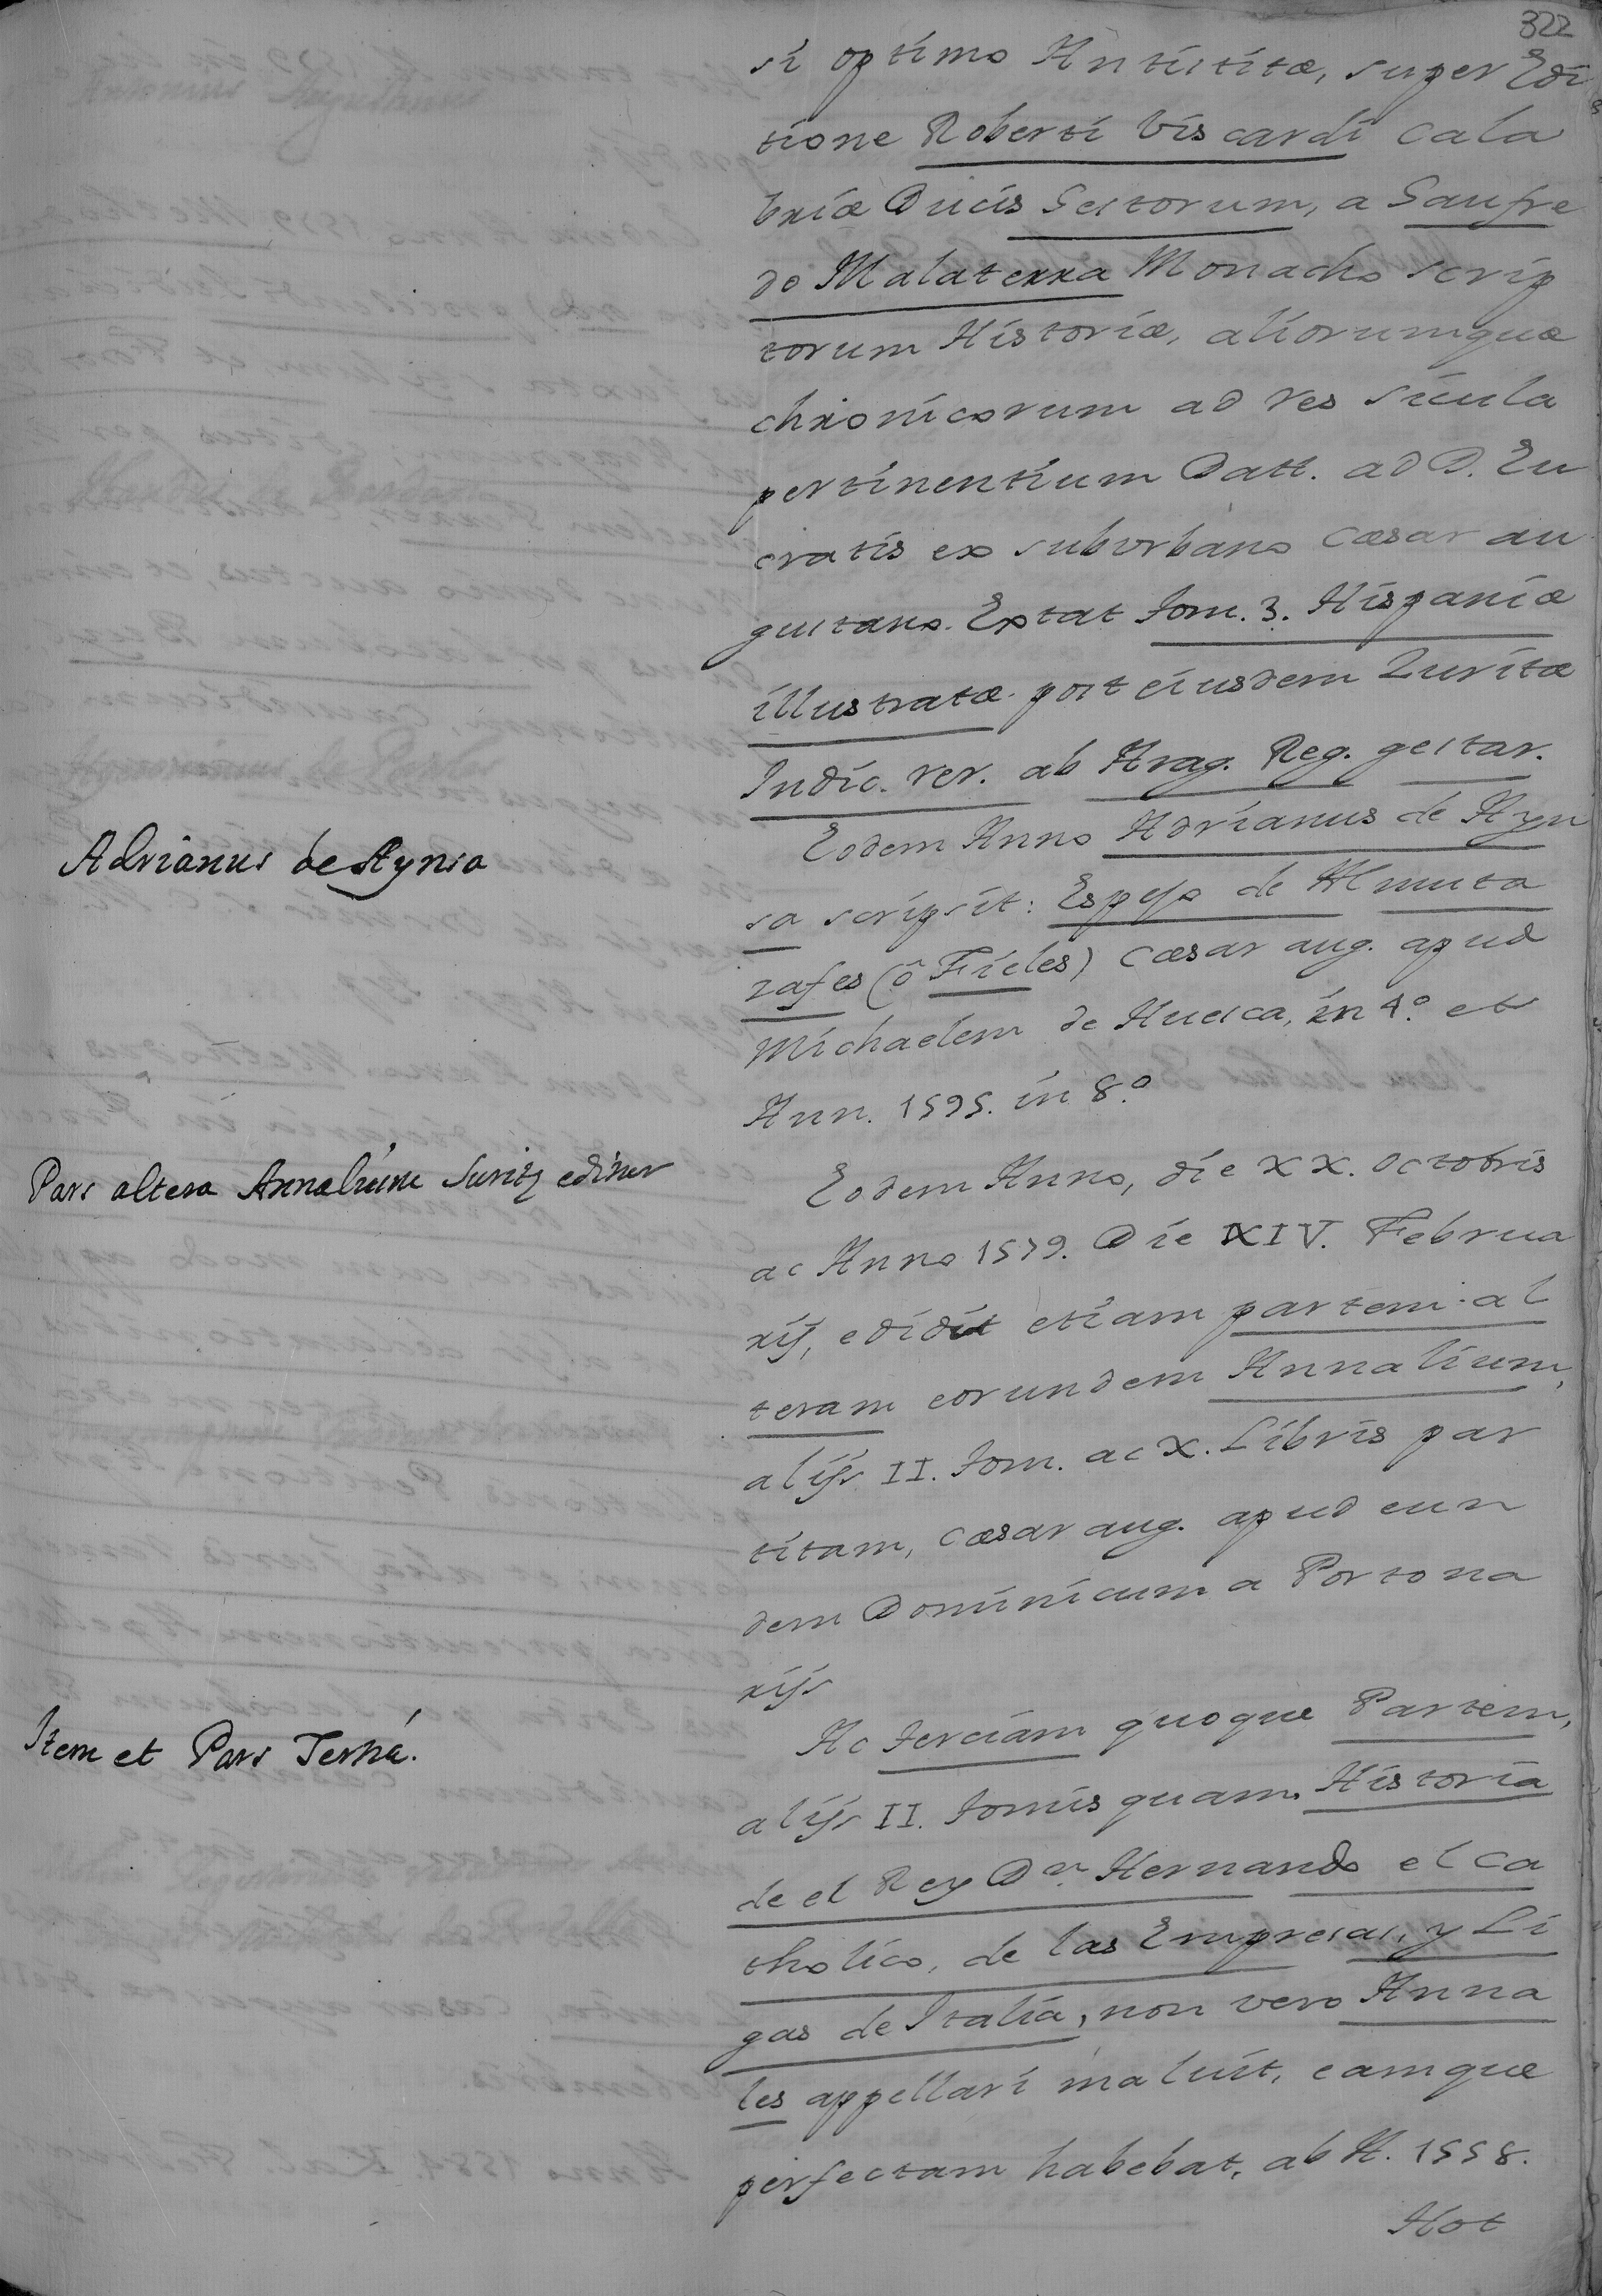 322
si optimo Antistitæ, super Edi
tione Roberti Viscardi Cala
briæ Ducis Gestorum, a Gaufre
do Malaterra Monacho scrip
torum Historiæ, aliorumque
chronicorum ad res sicula
pertinentium Datt. ad D. En
cratis ex suburbano Cæsar au
gustano. Extat Tom. 3. Hispaniæ
illustratæ. post eiusdem Zuritæ
Indic. rer. ab Arag. Reg. gestar.
Adrianus de Aynsa
Eodem Anno Adrianus de Ayn
sa scripsit: Espejo de Almuta
zafes (ô Fieles) Cæsar aug. apud
Michaelem de Huesca, in 4.º et
Ann. 1595. in 8.º
Pars altera Annalium Suritȩ editur
Eodem Anno, die XX. Octobris
ac Anno 1579. Die XIV. Februa
rij, edidit etiam partem al
teram eorundem Annalium,
alijs II. Tom. ac X. Libris par
titam, Cæsar aug. apud eun
dem Dominicum a Portona
rijs
Item et Pars Tertia.
Ac terciam quoque Partem,
alijs II. Tomis quam. Historia
de el Rey Dn. Hernando el Ca
tholico, de las Empresas, y Li
gas de Italia, non vero Anna
les appellari maluit, eamque
perfectam habebat, ab A. 1558.
Hot